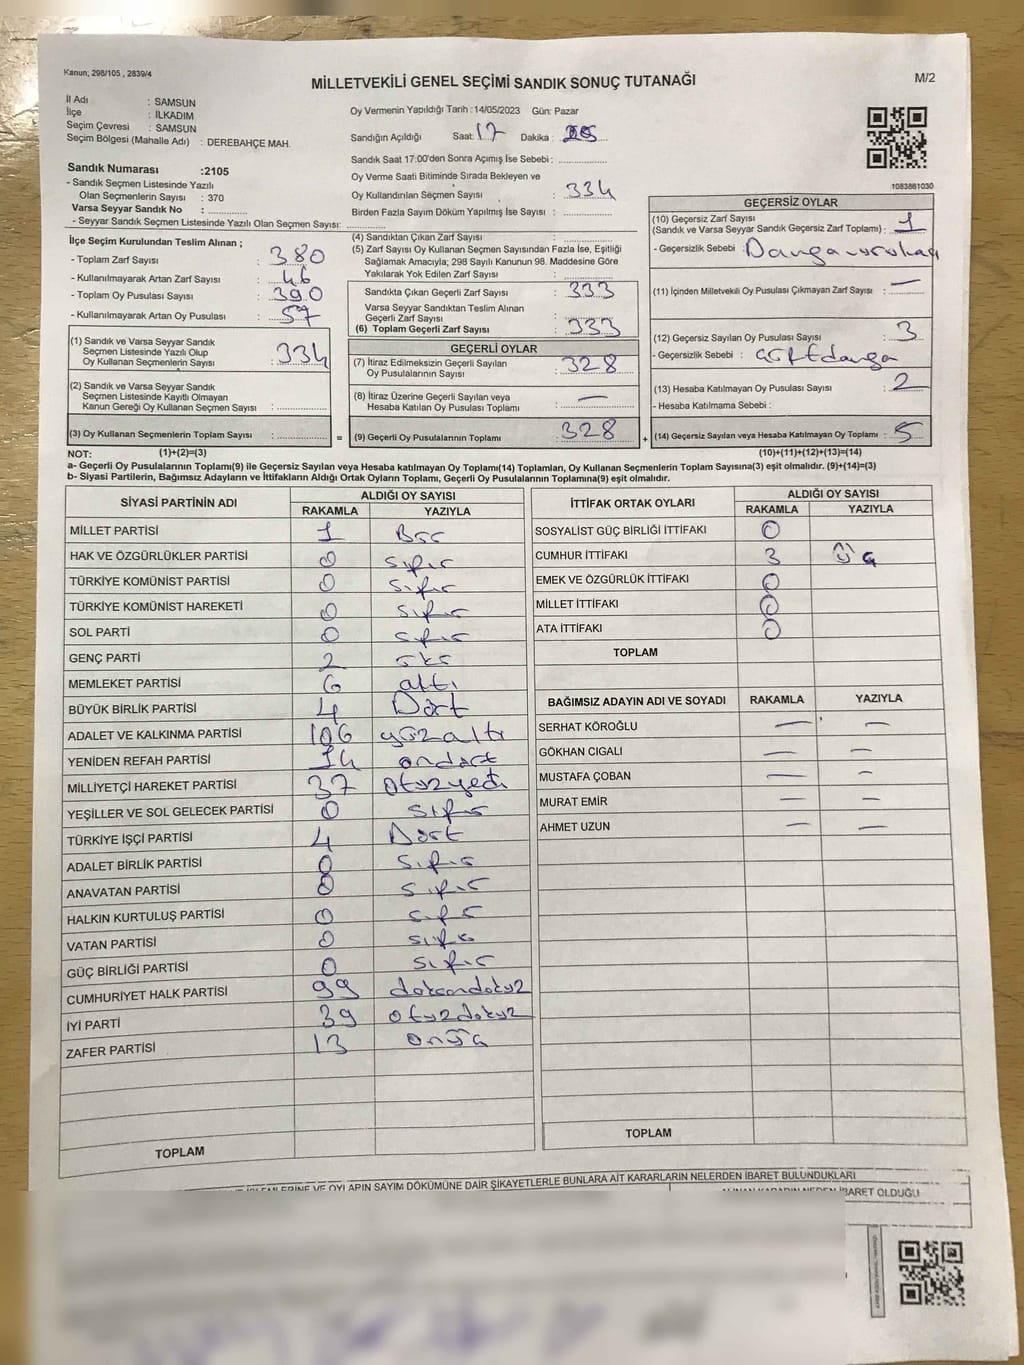 Kanun; 298/105 , 2839/4
MİLLETVEKİLİ GENEL SEÇİMİ SANDIK SONUÇ TUTANAĞI
M/2
İl Adı : SAMSUN
İlçe : İLKADIM
Seçim Çevresi : SAMSUN
Seçim Bölgesi (Mahalle Adı) : DEREBAHÇE MAH.
Oy Vermenin Yapıldığı Tarih :14/05/2023 Gün: Pazar
Sandığın Açıldığı Saat: 17 Dakika :
Sandık Saat 17:00'den Sonra Açımış İse Sebebi :
Sandık Numarası :2105
- Sandık Seçmen Listesinde Yazılı
Olan Seçmenlerin Sayısı : 370
Varsa Seyyar Sandık No :
- Seyyar Sandık Seçmen Listesinde Yazılı Olan Seçmen Sayısı:
Oy Verme Saati Bitiminde Sırada Bekleyen ve
Oy Kullandırılan Seçmen Sayısı : 334
Birden Fazla Sayım Döküm Yapılmış İse Sayısı :
1083861030
İlçe Seçim Kurulundan Teslim Alınan ;
- Toplam Zarf Sayısı : 380
- Kullanılmayarak Artan Zarf Sayısı : 46
- Toplam Oy Pusulası Sayısı : 390
- Kullanılmayarak Artan Oy Pusulası : 57
(1) Sandık ve Varsa Seyyar Sandık
Seçmen Listesinde Yazılı Olup
Oy Kullanan Seçmenlerin Sayısı : 334
(2) Sandık ve Varsa Seyyar Sandık
Seçmen Listesinde Kayıtlı Olmayan
Kanun Gereği Oy Kullanan Seçmen Sayısı :
(3) Oy Kullanan Seçmenlerin Toplam Sayısı :
(4) Sandıktan Çıkan Zarf Sayısı :
(5) Zarf Sayısı Oy Kullanan Seçmen Sayısından Fazla İse, Eşitliği
Sağlamak Amacıyla; 298 Sayılı Kanunun 98. Maddesine Göre
Yakılarak Yok Edilen Zarf Sayısı :
Sandıkta Çıkan Geçerli Zarf Sayısı : 333
Varsa Seyyar Sandıktan Teslim Alınan
Geçerli Zarf Sayısı :
(6) Toplam Geçerli Zarf Sayısı : 333
GEÇERLİ OYLAR
(7) İtiraz Edilmeksizin Geçerli Sayılan
Oy Pusulalarının Sayısı : 328
(8) İtiraz Üzerine Geçerli Sayılan veya
Hesaba Katılan Oy Pusulası Toplamı : —
= (9) Geçerli Oy Pusulalarının Toplamı : 328
GEÇERSİZ OYLAR
(10) Geçersiz Zarf Sayısı
(Sandık ve Varsa Seyyar Sandık Geçersiz Zarf Toplamı) : 1
- Geçersizlik Sebebi :
(11) İçinden Milletvekili Oy Pusulası Çıkmayan Zarf Sayısı : —
(12) Geçersiz Sayılan Oy Pusulası Sayısı : 3
- Geçersizlik Sebebi : çift damga
(13) Hesaba Katılmayan Oy Pusulası Sayısı : 2
- Hesaba Katılmama Sebebi :
+ (14) Geçersiz Sayılan veya Hesaba Katılmayan Oy Toplamı : 5
NOT: (1)+(2)=(3) (10)+(11)+(12)+(13)=(14)
a- Geçerli Oy Pusulalarının Toplamı(9) ile Geçersiz Sayılan veya Hesaba katılmayan Oy Toplamı(14) Toplamları, Oy Kullanan Seçmenlerin Toplam Sayısına(3) eşit olmalıdır. (9)+(14)=(3)
b- Siyasi Partilerin, Bağımsız Adayların ve İttifakların Aldığı Ortak Oyların Toplamı, Geçerli Oy Pusulalarının Toplamına(9) eşit olmalıdır.
SİYASİ PARTİNİN ADI ALDIĞI OY SAYISI
RAKAMLA YAZIYLA
MİLLET PARTİSİ 1 Bir
HAK VE ÖZGÜRLÜKLER PARTİSİ 0 sıfır
TÜRKİYE KOMÜNİST PARTİSİ 0 sıfır
TÜRKİYE KOMÜNİST HAREKETİ 0 sıfır
SOL PARTİ 0 sıfır
GENÇ PARTİ 2 iki
MEMLEKET PARTİSİ 6 altı
BÜYÜK BİRLİK PARTİSİ 4 Dört
ADALET VE KALKINMA PARTİSİ 106 yüzaltı
YENİDEN REFAH PARTİSİ 14 ondört
MİLLİYETÇİ HAREKET PARTİSİ 37 otuzyedi
YEŞİLLER VE SOL GELECEK PARTİSİ 0 sıfır
TÜRKİYE İŞÇİ PARTİSİ 4 Dört
ADALET BİRLİK PARTİSİ 0 sıfır
ANAVATAN PARTİSİ 0 sıfır
HALKIN KURTULUŞ PARTİSİ 0 sıfır
VATAN PARTİSİ 0 sıfır
GÜÇ BİRLİĞİ PARTİSİ 0 sıfır
CUMHURİYET HALK PARTİSİ 99 doksandokuz
İYİ PARTİ 39 otuzdokuz
ZAFER PARTİSİ 13 onüç
TOPLAM
İTTİFAK ORTAK OYLARI ALDIĞI OY SAYISI
RAKAMLA YAZIYLA
SOSYALİST GÜÇ BİRLİĞİ İTTİFAKI 0
CUMHUR İTTİFAKI 3 üç
EMEK VE ÖZGÜRLÜK İTTİFAKI 0
MİLLET İTTİFAKI 0
ATA İTTİFAKI 0
TOPLAM
BAĞIMSIZ ADAYIN ADI VE SOYADI RAKAMLA YAZIYLA
SERHAT KÖROĞLU — —
GÖKHAN CIGALI — —
MUSTAFA ÇOBAN — —
MURAT EMİR — —
AHMET UZUN — —
TOPLAM
OYLARIN SAYIM DÖKÜMÜNE DAİR ŞİKAYETLERLE BUNLARA AİT KARARLARIN NELERDEN İBARET BULUNDUKLARI
İBARET OLDUĞU